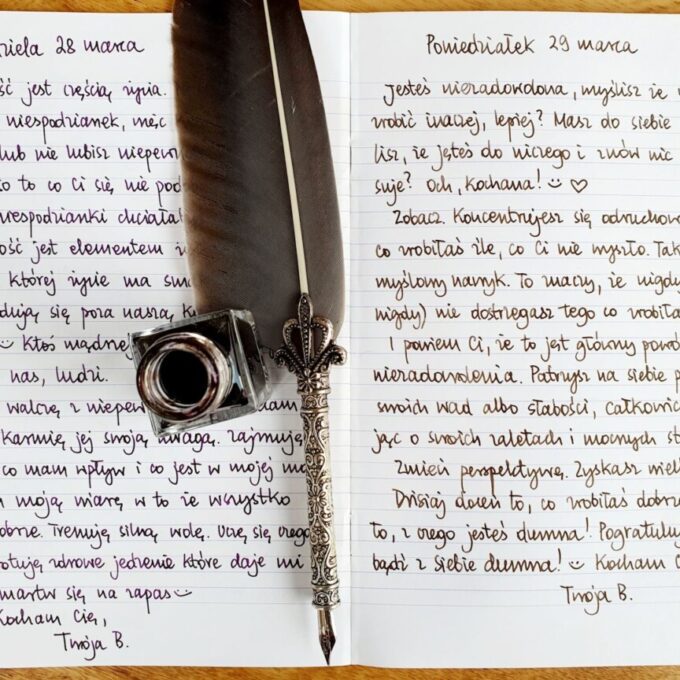 ziela 28 marca
ść jest częścią życia.
niespodzianek, męc
lub nie lubisz niepew
to to co Ci się nie pod
niespodzianki chciała
ość jest elementem
której życie ma sma
dują się poza naszą k
Ktoś mądney
nas, ludzi.
walczę z niepew dam
karmię jej swoją uwagą. Zajmuję
co mam wpływ i co jest w mojej mo
moją wiarę w to że wszystko
obrze. Trenuję silną wolę. Uczę się czego
otuję zdrowe jedzenie które daje mi
martw się na zapas
Kocham Cię,
Twoja B.
Poniedziałek 29 marca
Jesteś niezadowolona, myślisz że
zrobić inaczej, lepiej? Masz do siebie
lisz, że jęteś do niczego i znów nic
suje? Och, Kochana!
Zobacz. Koncentrujesz się odruchow
co zrobiłaś źle, co Ci nie wyszło. Tak
myślowy nawyk. To znaczy, że nigdy
nigdy) nie dostrzegasz tego co zrobiła
I powiem Ci, że to jest główny pow
niezadowolenia. Patrzysz na siebie p
swoich wad albo słabości, całkowic
jąc o swoich zaletach i mocnych st
Zmień perspektywę. Zyskasz wiel
Dzisiaj doceń to, co zrobiłaś dobrz
to, z czego jesteś dumna! Pogratuluj
bądź z siebie dumna! Kocham C
Twoja B.